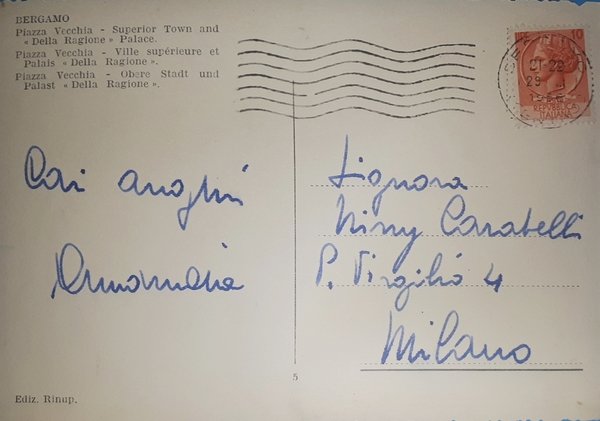 BERGAMO
Piazza Vecchia - Superior Town and
« Della Ragione » Palace.
Piazza Vecchia - Ville supérieure et
Palais « Della Ragione ».
Piazza Vecchia - Obere Stadt und
Palast « Della Ragione ».
10
21-22
29
REPUBBLICA
ITALIANA
Cari auguri
Annamaria
Signora
Niny Carabelli
P. Virgilio 4
Milano
5
Ediz. Rinup.